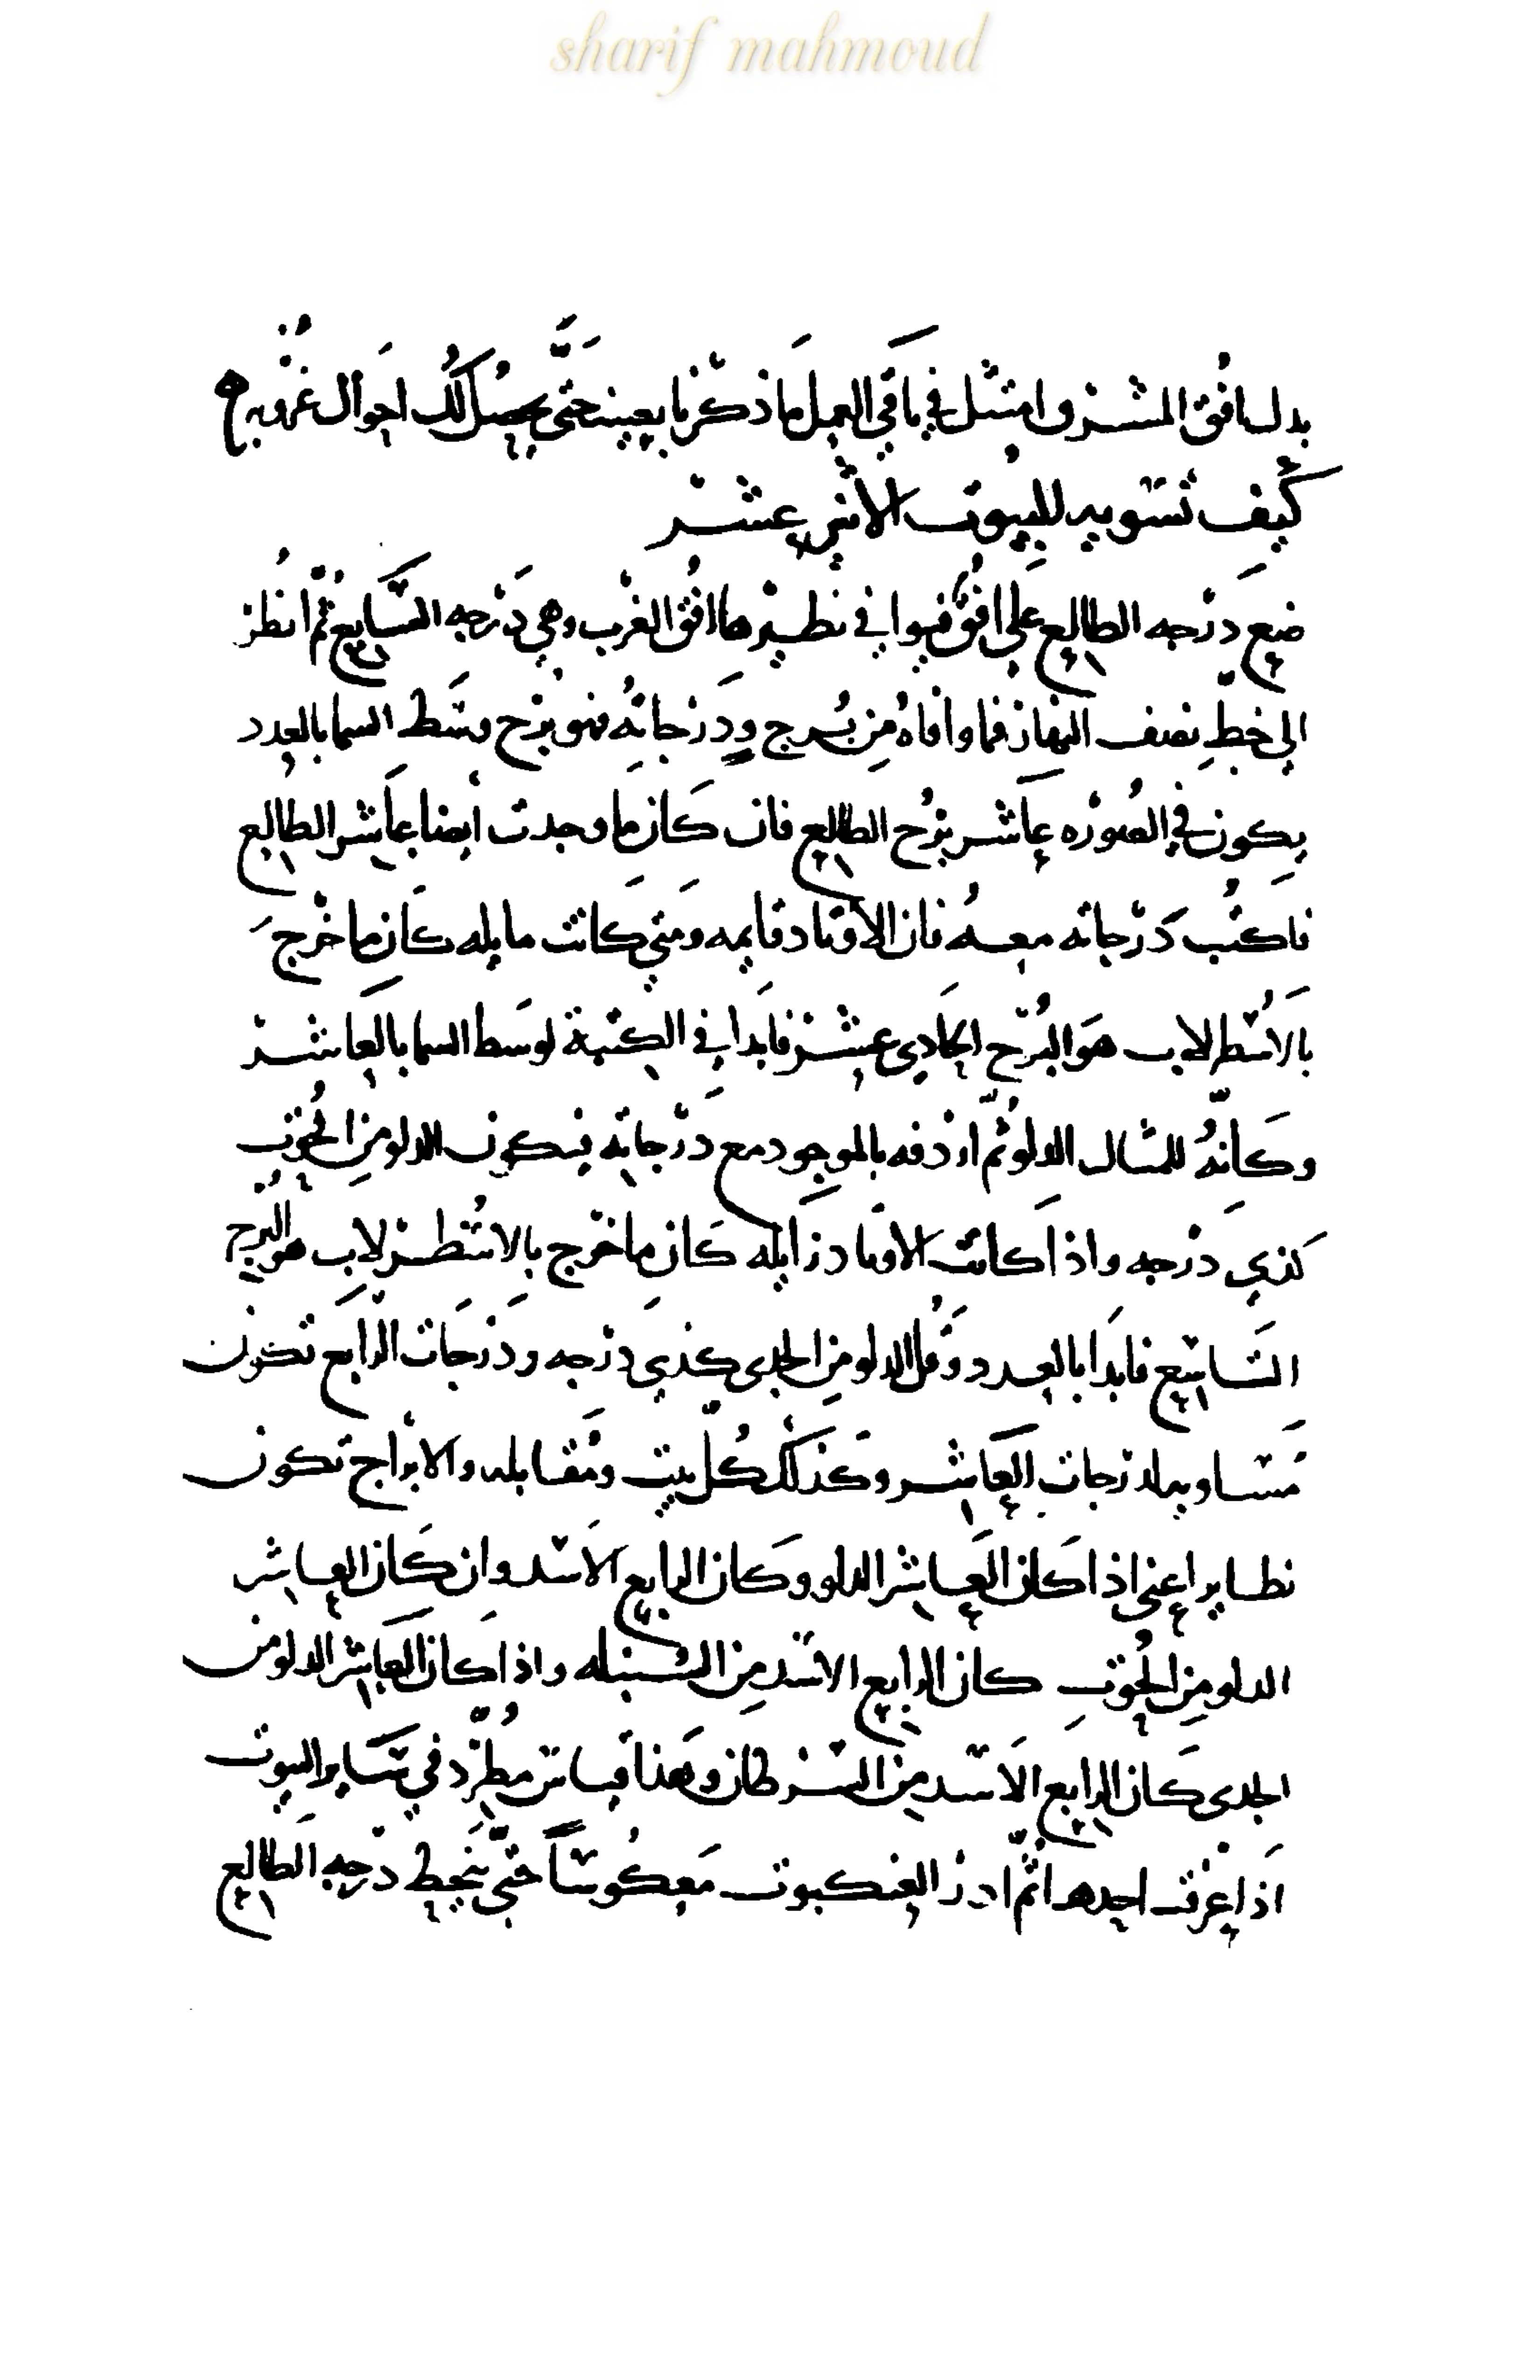 sharif mahmoud
بدل افق المشرق وامتثل في باقي العمل ما ذكرنا بعينه حتى يحصل لك احوال غروبه
كيف تسويه للبيوت الاثني عشر
ضع درجه الطالع على افق فيوافي نظيرها افق الغرب وهي درجه السابع ثم انظر
الى خط نصف النهار فما وافاه من برج ودرجاته فهو برج وسط السما بالعدد
يكون في الصوره عاشر برج الطالع فان كان ما وجدت ايضا عاشر الطالع
فاكتب درجاته معه فان الاوتاد قايمه ومتى كانت مايله كان ما خرج
بالاسطرلاب هو البرج الحادي عشر فابدا في الكتبة لوسط السما بالعاشر
وكانه للمثال الدلو ثم اردفه بالموجود مع درجاته فيكون الدلو من الحوت
كذي درجه واذا كانت الاوتاد زايله كان ما خرج بالاسطرلاب هو البرج
التاسع فابدا بالعدد وقل الدلو من الجدى كذي درجه ودرجات الرابع تكون
مساويه لدرجات العاشر وكذلك كل بيت ومقابله والابراج تكون
نظاير اعني اذا كان العاشر الدلو وكان الرابع الاسد وان كان العاشر
الدلو من الحوت كان الرابع الاسد من السنبله واذا كان العاشر الدلو من
الجدى كان الرابع الاسد من السرطان وهذا قياس مطرد في ساير البيوت
اذا عرفت احدها ثم ادر العنكبوت معكوسا حتى ينحط درجه الطالع